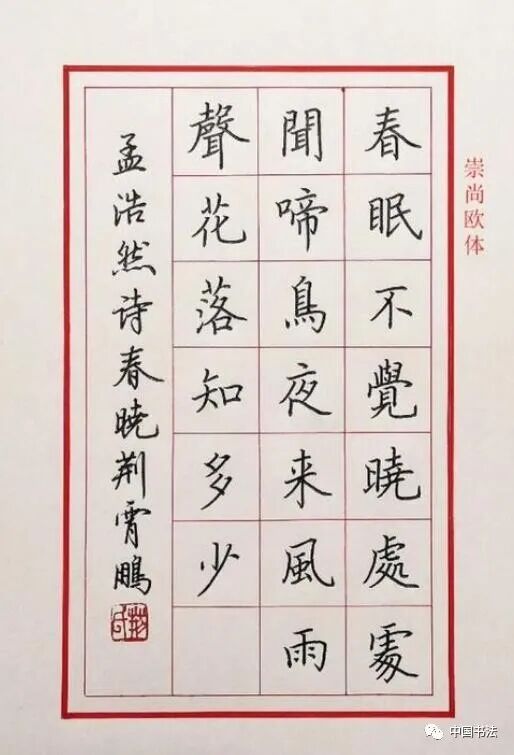 春眠不覺曉處處
聞啼鳥夜来風雨
聲花落知多少
孟浩然诗春曉荆霄鹏
崇尚欧体
中国书法